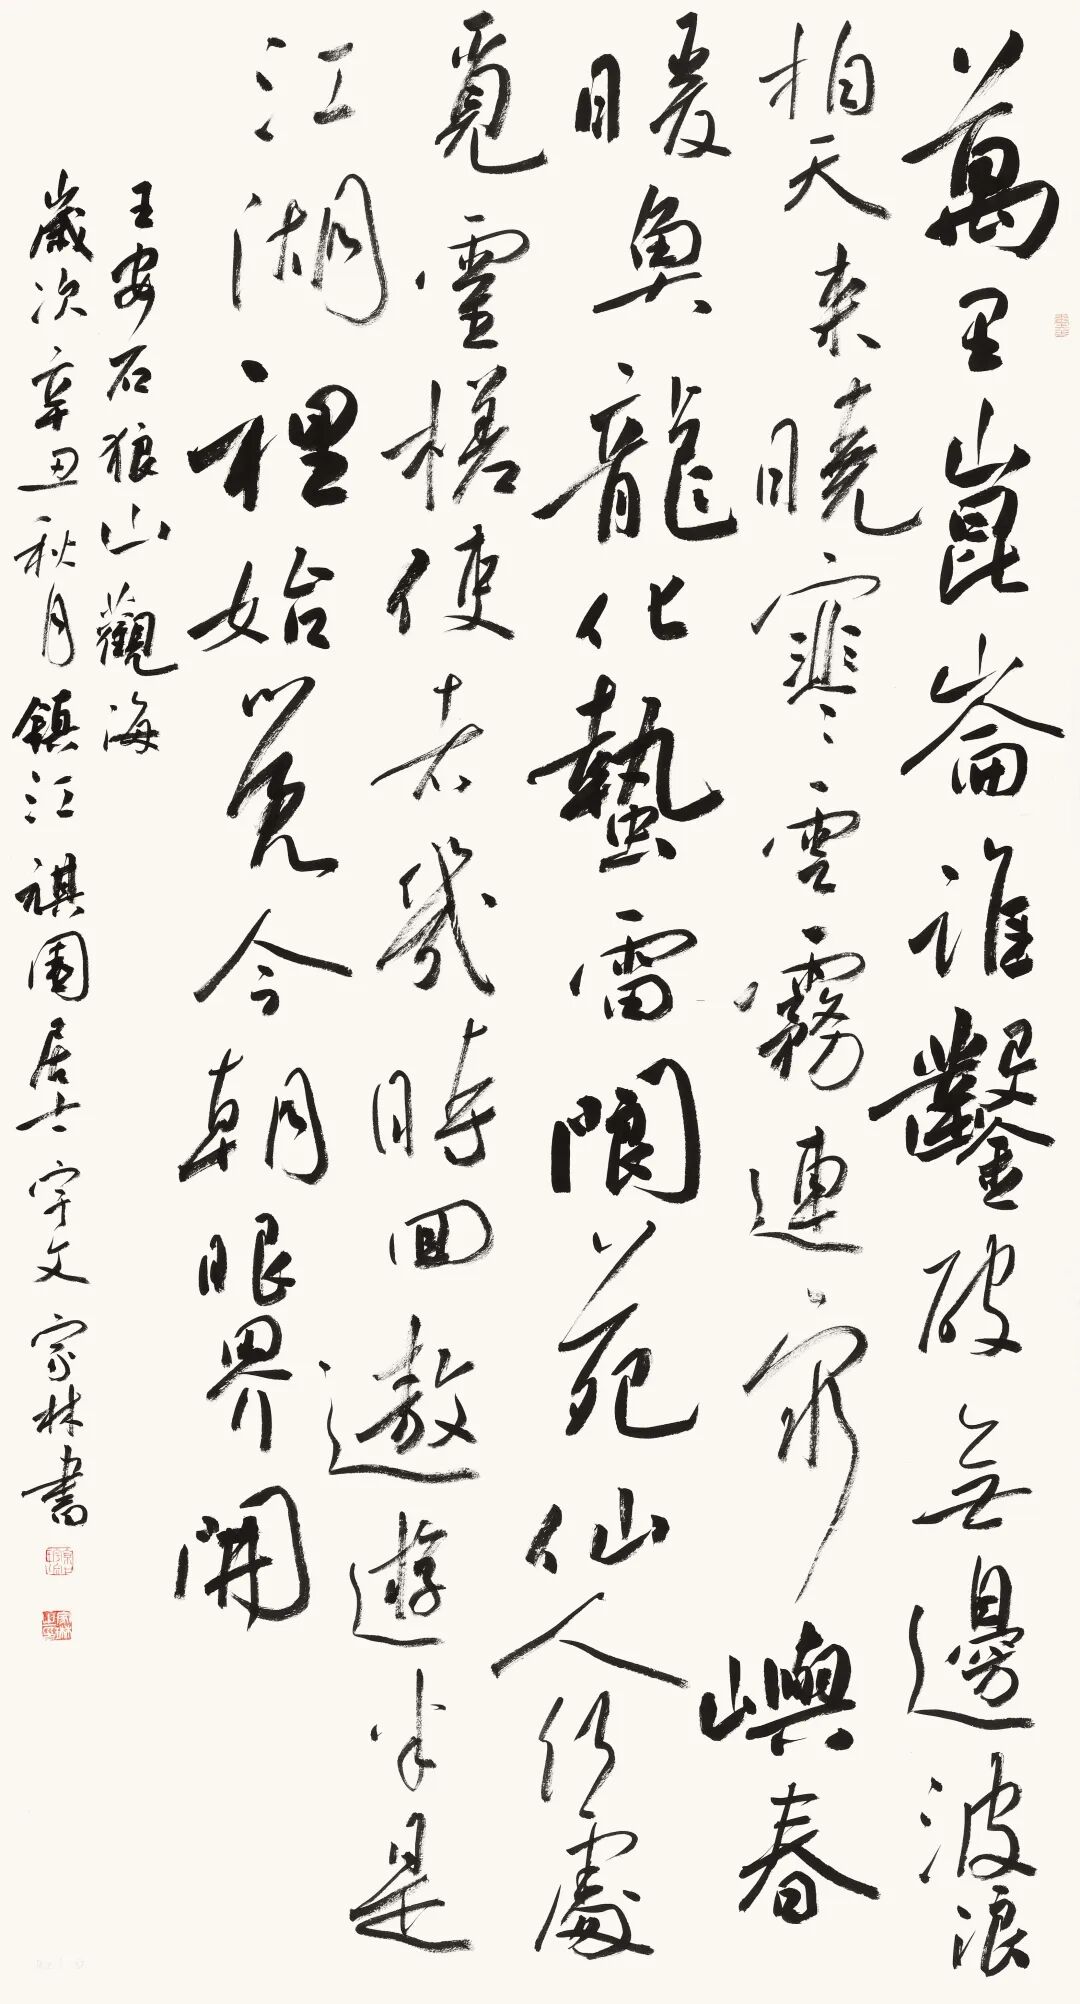 萬里崑崙誰鑿破無邊波浪
拍天来曉寒雲霧連窮嶼春
暖魚龍化蟄雷閬苑仙人何處
覓靈槎使者幾時回遨遊半是
江湖裡始覺今朝眼界開
王安石狼山觀海
歲次辛丑秋月鎮江祺園居士宇文家林書